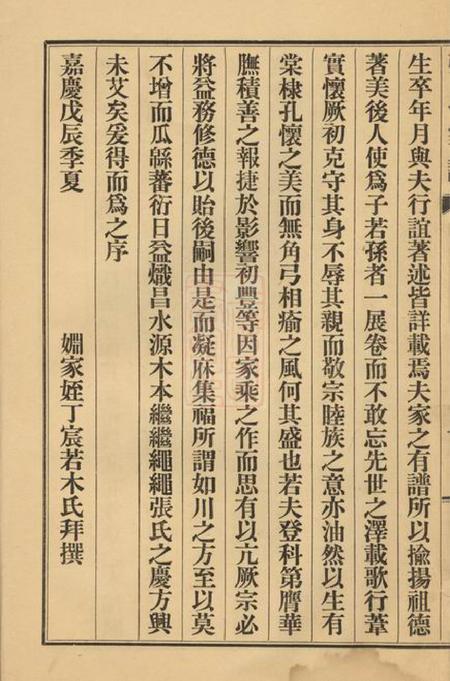 生卒年月與夫行誼著述皆詳載焉夫家之有譜所以揄揚祖德
著美後人使爲子若孫者一展卷而不敢忘先世之澤載歌行葦
實懷厥初克守其身不辱其親而敬宗睦族之意亦油然以生有
棠棣孔懷之美而無角弓相瘉之風何其盛也若夫登科第膺華
膴積善之報捷於影響初豐等因家乘之作而思有以亢厥宗必
將益務修德以貽後嗣由是而凝庥集福所謂如川之方至以莫
不增而瓜緜蕃衍日益熾昌水源木本繼繼繩繩張氏之慶方興
未艾矣爰得而爲之序
嘉慶戊辰季夏　姻家姪丁宸若木氏拜撰